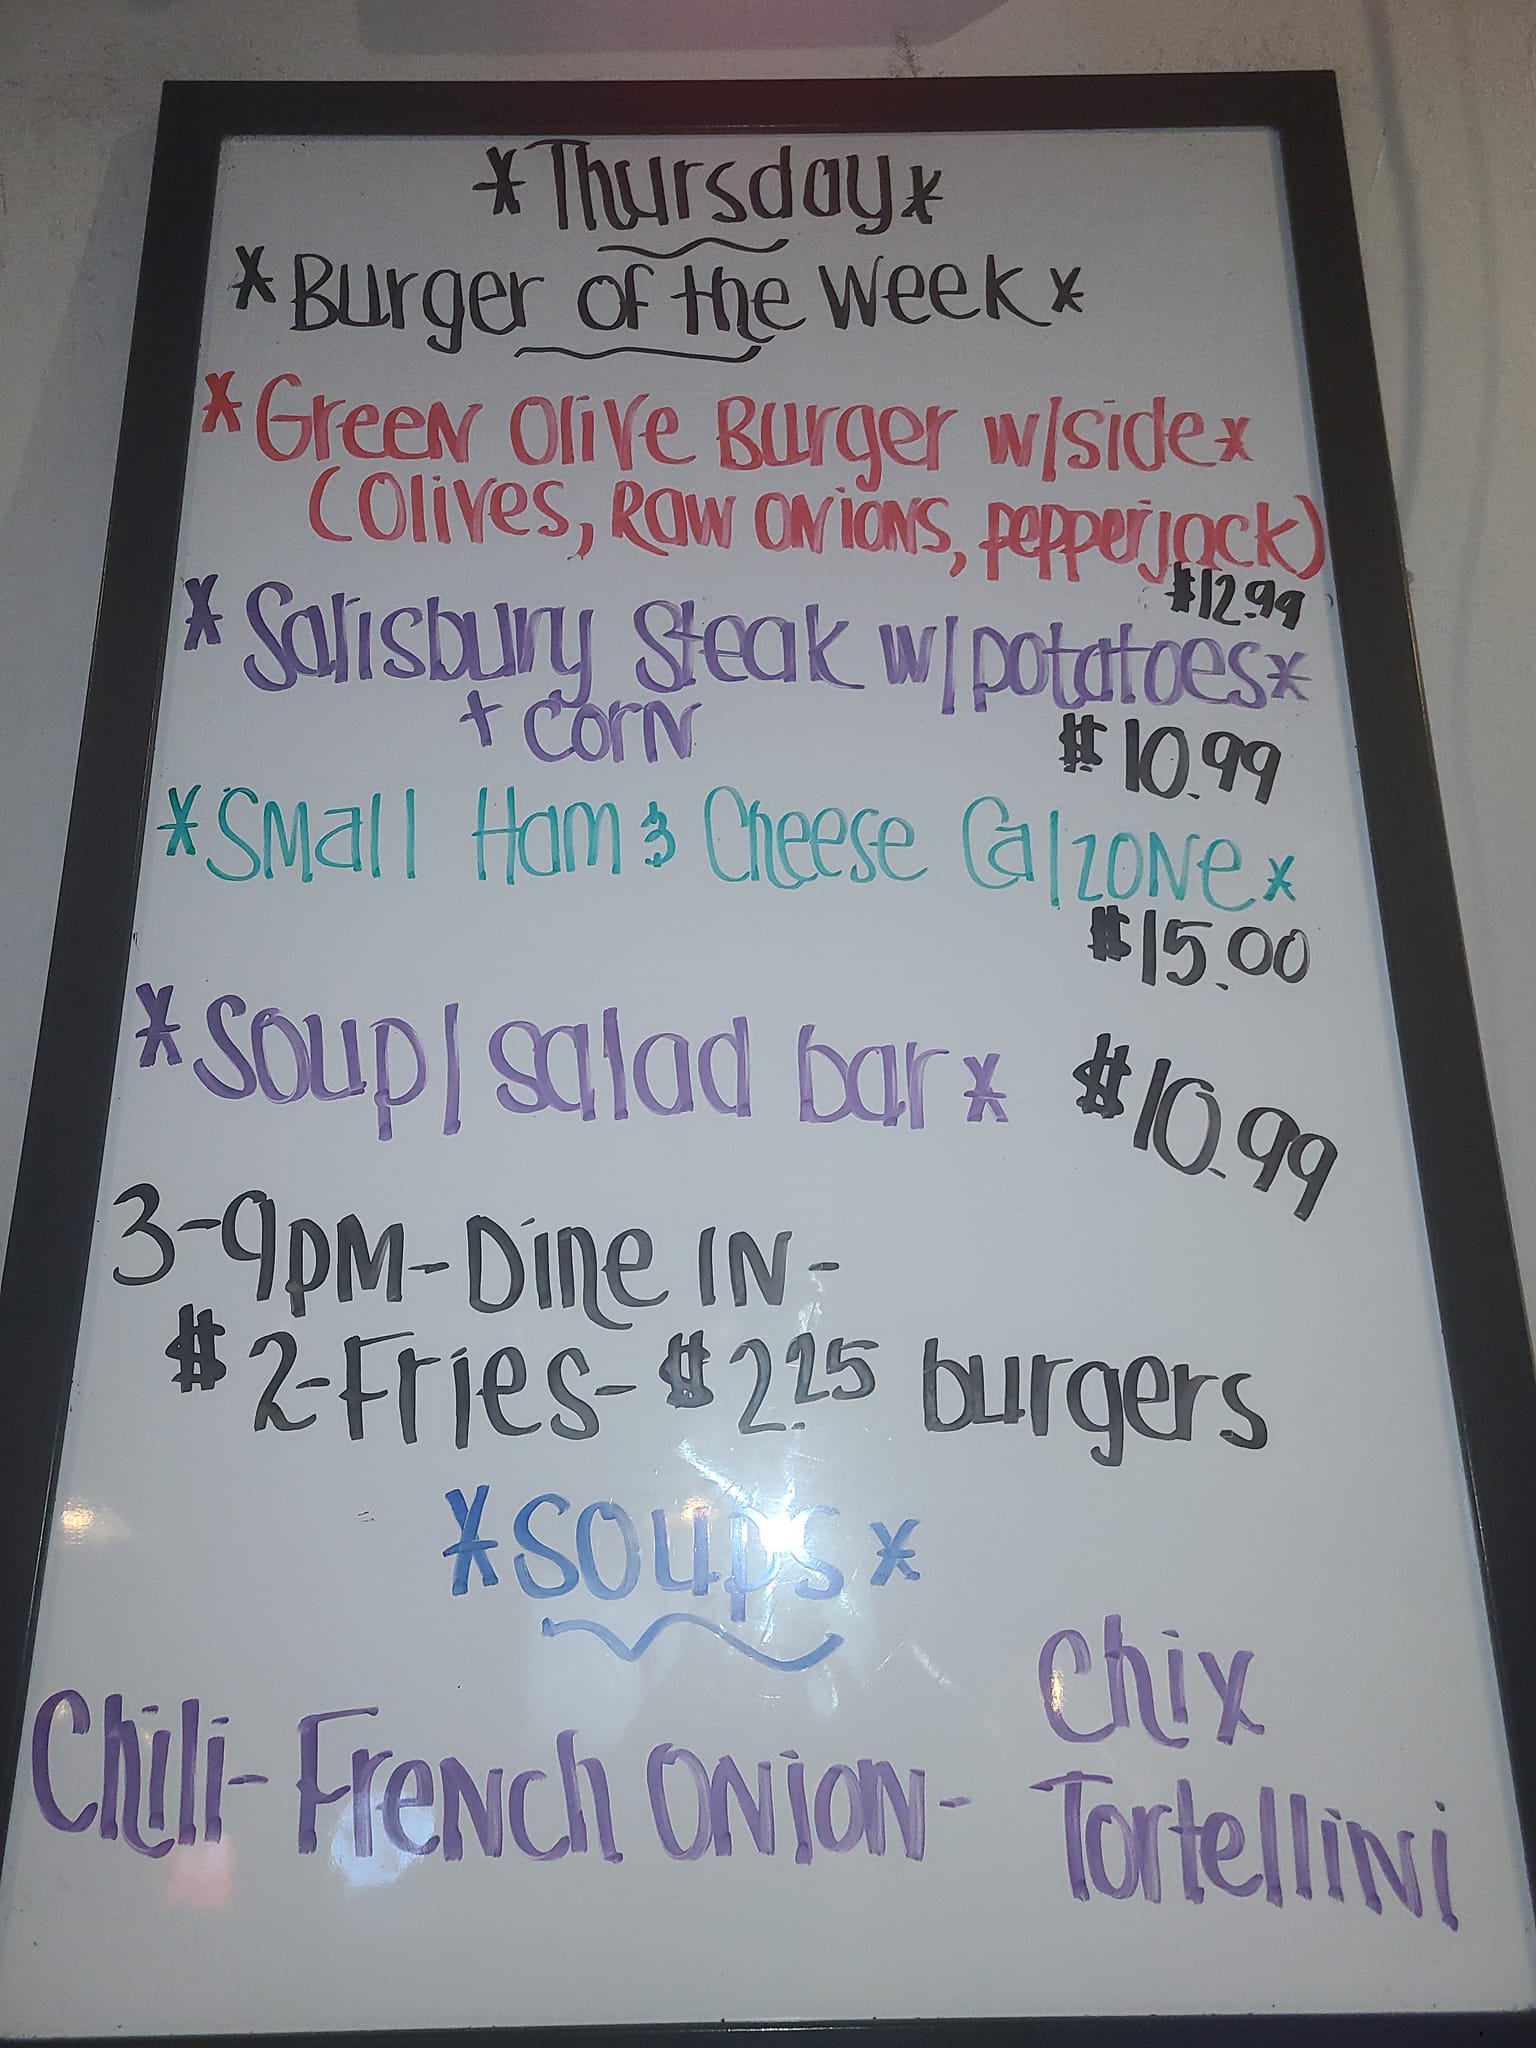 *Thursday*
*Burger of the week*
*Green Olive Burger w/side*
(Olives, Raw onions, pepperjack)
$12.99
*Salisbury Steak w/potatoes*
+ corn
$10.99
*Small Ham & Cheese Calzone*
$15.00
*Soup/salad bar* $10.99
3-9pm-Dine IN-
$2-Fries-$2.25 burgers
*Soups*
Chili-French Onion- Chix
Tortellini